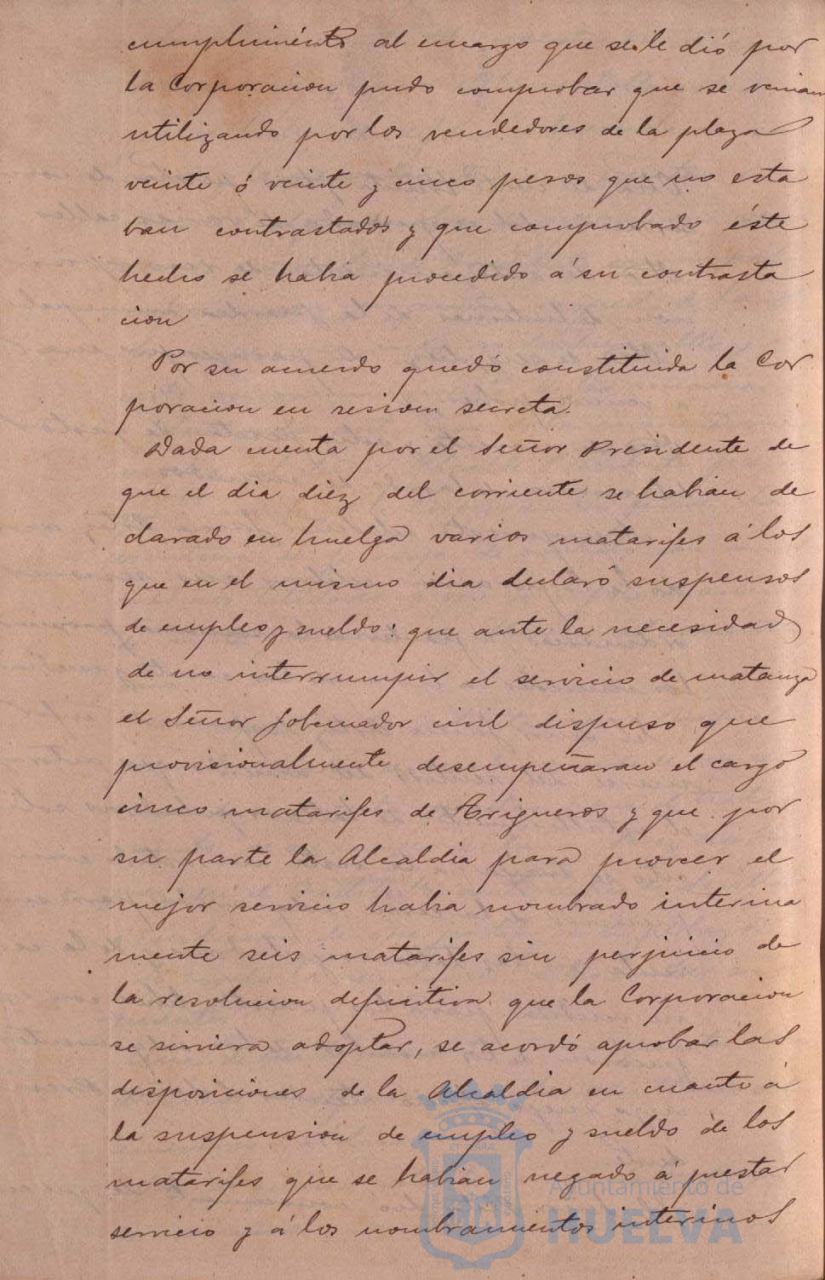 cumplimiento al encargo que se le dió por
la Corporacion pudo comprobar que se venian
utilizando por los vendedores de la plaza
veinte ó veinte y cinco pesos que no esta
ban contrastados y que comprobado éste
hecho se habia procedido á su contrasta
cion
Por su acuerdo quedó constituida la Cor
poracion en sesion secreta.
Dada cuenta por el Señor Presidente de
que el dia diez del corriente se habian de
clarado en huelga varios matarifes á los
que en el mismo dia declaró suspensos
de empleo y sueldo: que ante la necesidad
de no interrumpir el servicio de matanza
el Señor Gobernador civil dispuso que
provisionalmente desempeñaran el cargo
cinco matarifes de Trigueros y que por
su parte la Alcaldia para proveer el
mejor servicio habia nombrado interina
mente seis matarifes sin perjuicio de
la resolucion definitiva que la Corporacion
se sirviera adoptar, se acordó aprobar las
disposiciones de la Alcaldia en cuanto á
la suspension de empleo y sueldo de los
matarifes que se habian negado á prestar
servicio y á los nombramientos interinos
Ayuntamiento de
HUELVA